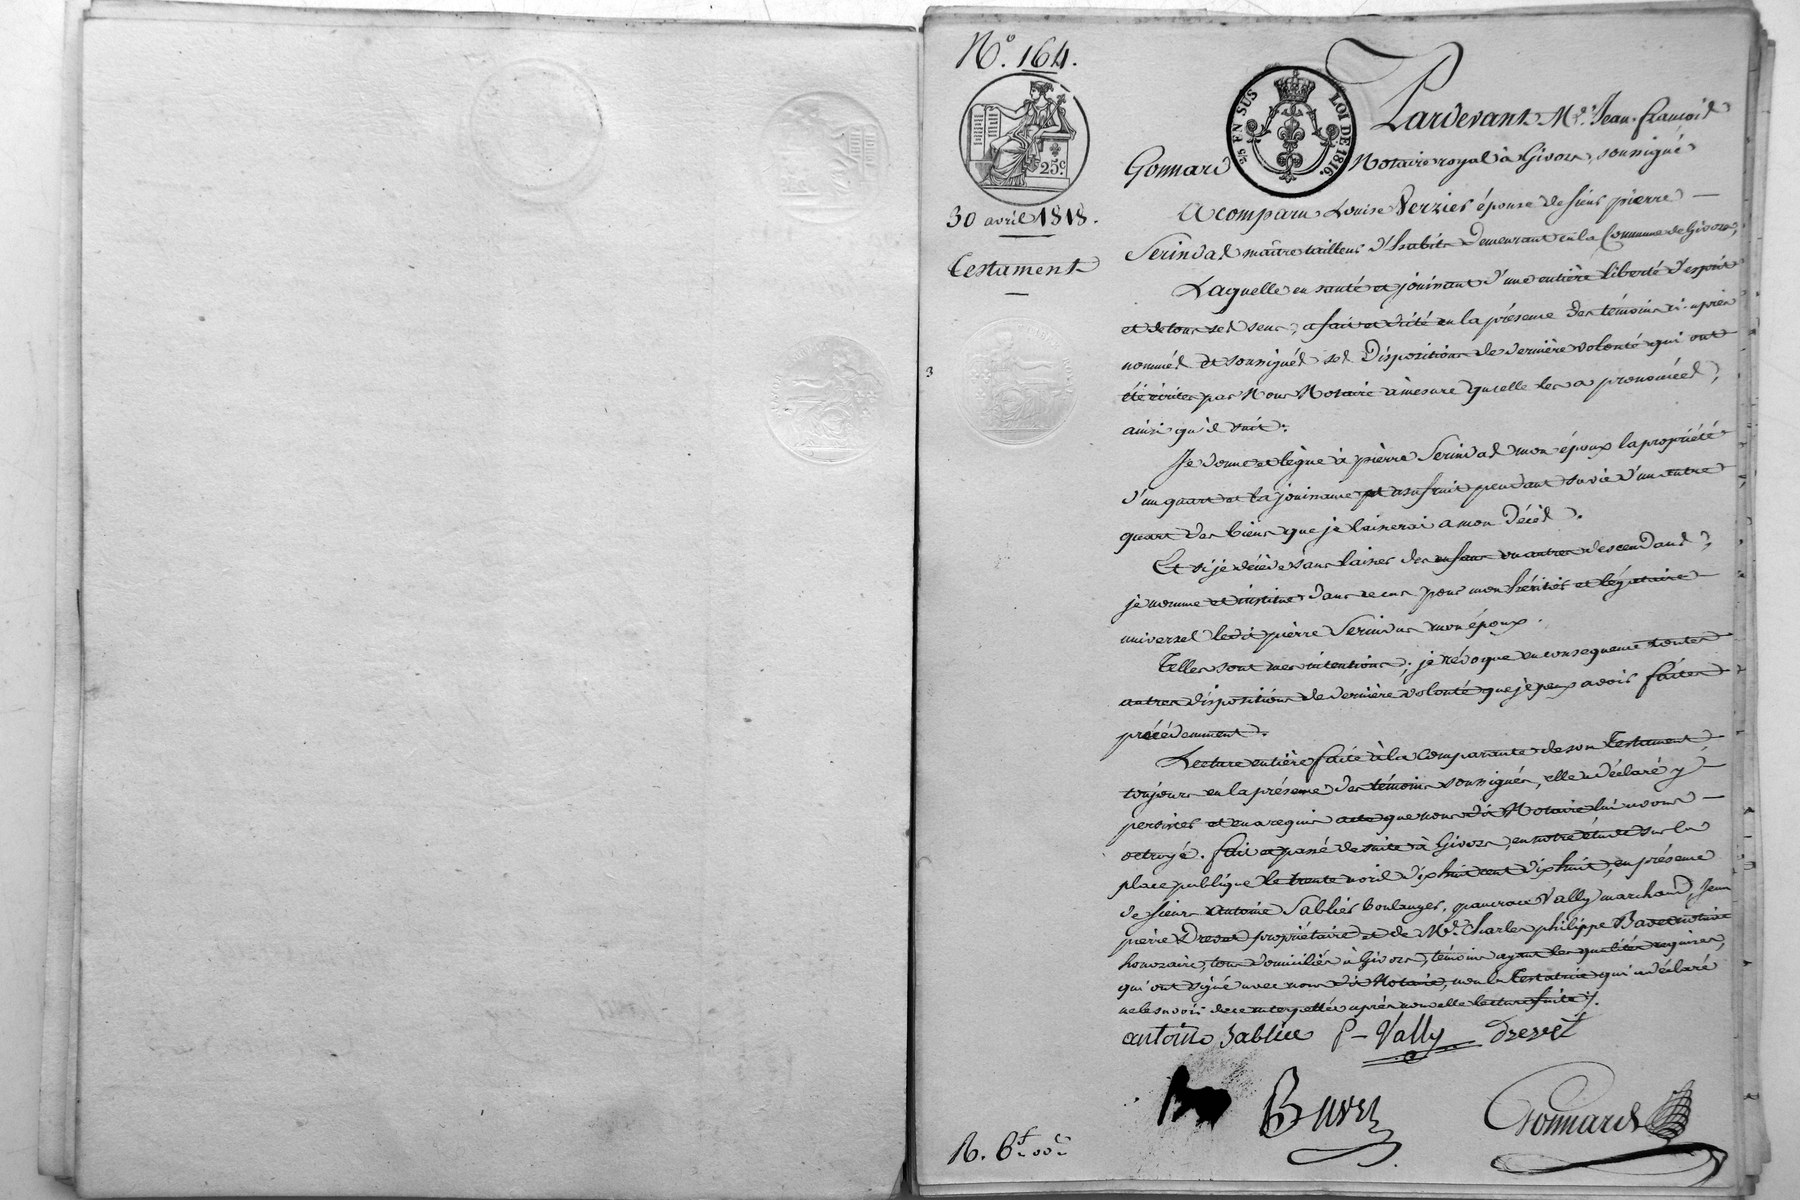 N.º 164.
25 EN SUS LOI DE 1816.
25.c
Pardevant M.e Jean-françois
Gonnard Notaire royal à Givors, soussigné
30 avril 1818.
A comparu Louise Verzier épouse de sieur pierre
Testament
Serindas maître tailleur d'habits demeurant en la Commune de Givors,
Laquelle en santé et jouissant d'une entière liberté d'esprit
et de tous ses sens, a fait et dicté en la présence des témoins ci-après
nommés et soussignés ses dispositions de dernière volonté qui ont
été écrites par Nous Notaire à mesure qu'elle les a prononcées,
ainsi qu'il suit.
Je donne et lègue à pierre Serindas mon époux la propriété
d'un quart et la jouissance et usufruit pendant sa vie d'un autre
quart des biens que je laisserai a mon décès.
Et si je décède sans laisser des enfans ou autres descendans,
je nomme et institue dans ce cas pour mon héritier et légataire
universel ledit pierre Serindas mon époux.
Telles sont mes intentions; je révoque en consequence toutes
autres dispositions de dernière volonté que je peux avoir faites
précédemment.
Lecture entière faite à la Comparante de son Testament
toujours en la présence des témoins soussignés, elle a déclaré y
persister et en a requis acte que nous dit Notaire lui avons
octroyé. fait et passé de suite à Givors, en notre étude sur la
place publique le trente avril dix huit cent dix huit, en présence
de sieurs Antoine Sablier boulanger, pancrace Vally marchand, Jean
pierre Drevet propriétaire et de M.e Charles philippe Bavet notaire
honoraire, tous domiciliés à Givors, témoins ayant les qualités requises,
qui ont signé avec nous dit Notaire, non la Testatrice qui a déclaré
ne le savoir de ce interpellée après nouvelle lecture faite /.
antoine Sablier P-Vally Drevet
Bavet Gonnard